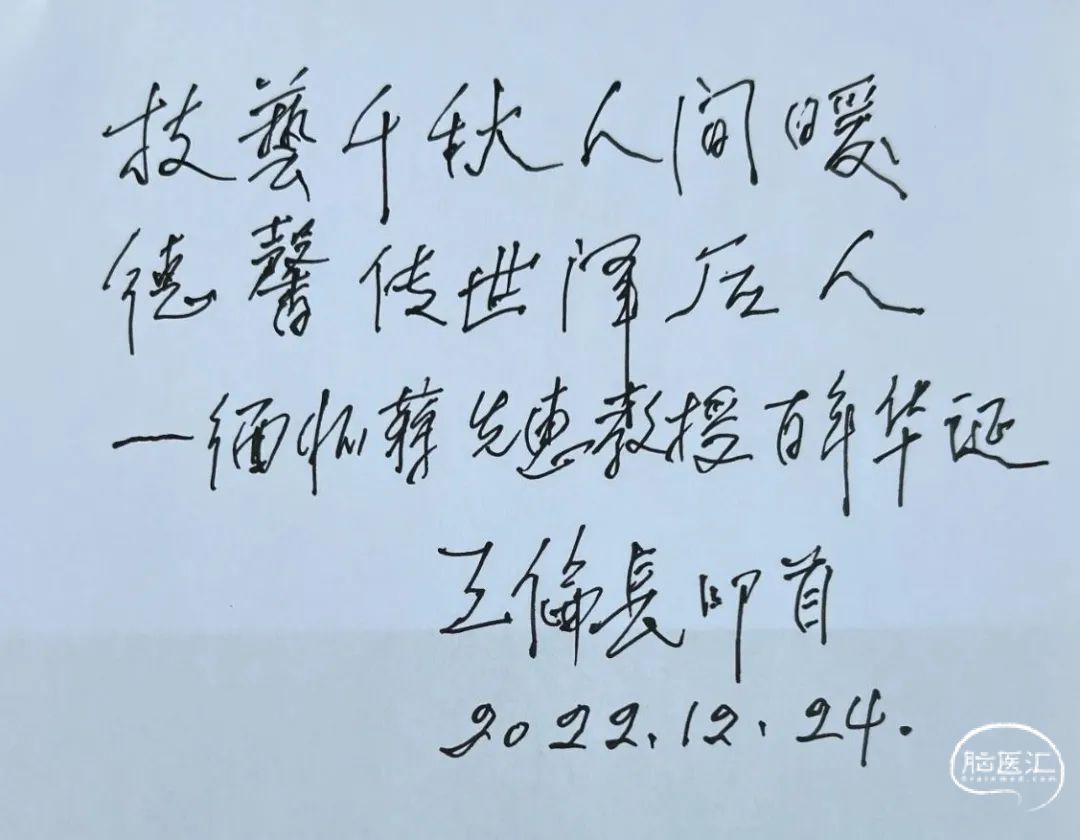 技藝千秋人间暖
德馨传世泽后人
—缅怀蒋先惠教授百年华诞
王倫長叩首
2022.12.24.
脑医汇
brainmed.com